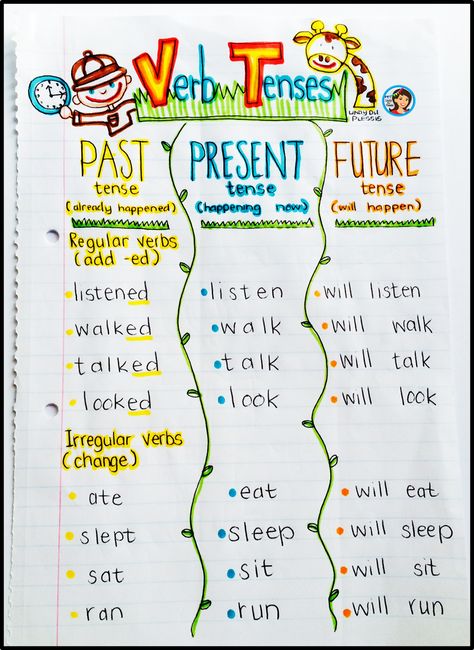 Verb Tenses
LINDY DU PLESSIS
PAST PRESENT FUTURE
tense tense tense
(already happened) (happening now) (will happen)
Regular verbs
(add -ed)
•listened •listen •will listen
•walked •walk •will walk
•talked •talk •will talk
•looked •look •will look
Irregular verbs
(change)
• ate •eat •will eat
•slept •sleep •will sleep
• sat •sit •will sit
• ran •run •will run